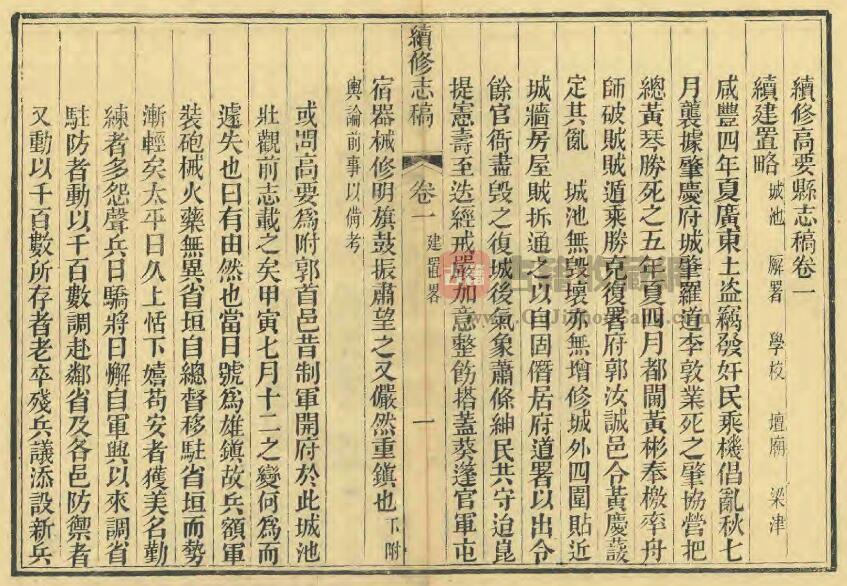 續修高要縣志稿卷一
續建置略 城池 廨署 學校 壇廟 梁津
咸豐四年夏廣東土盜竊發奸民乘機倡亂秋七
月襲據肇慶府城肇羅道李敦業死之肇協營把
總黃琴勝死之五年夏四月都閫黃彬奉檄率舟
師破賊賊遁乘勝克復署府郭汝誠邑令黃慶
定其亂 城池無毀壞亦無增修城外四圍貼近
城牆房屋賊拆通之以自固僭居府道署以出令
餘官衙盡毀之復城後氣象蕭條紳民共守迨崑
提憲壽至迭經戒嚴加意整飭搭蓋葵蓬官軍屯
續修志稿 卷一 建置畧 一
宿器械修明旗鼓振肅望之又儼然重鎮也 下附
輿論前事以備考
或問高要為附郭首邑昔制軍開府於此城池
壯觀前志載之矣甲寅七月十二之變何為而
遽失也曰有由然也當日號為雄鎮故兵額軍
裝砲械火藥無異省垣自總督移駐省垣而勢
漸輕矣太平日久上恬下嬉苟安者獲美名勤
練者多怨聲兵日驕將日懈自軍興以來調省
駐防者動以千百數調赴鄰省及各邑防禦者
又動以千百數所存者老卒殘兵議添設新兵